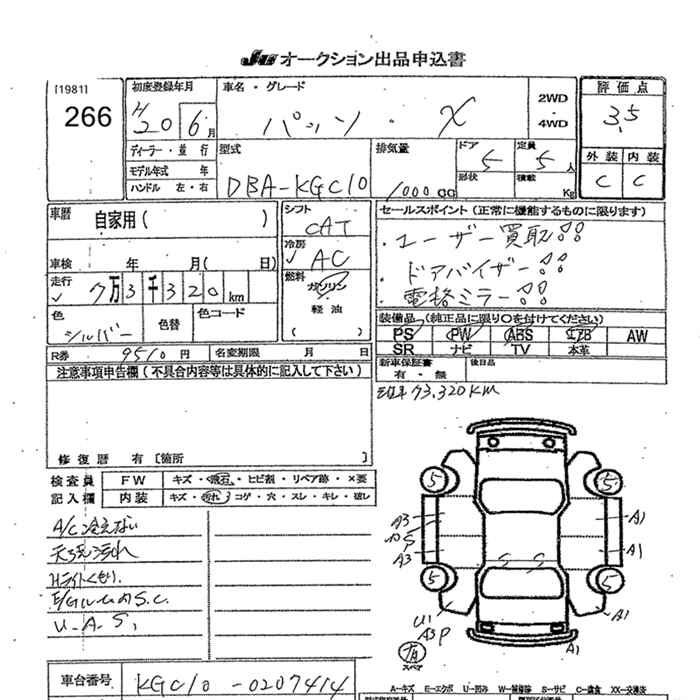 JU オークション出品申込書
[1981]
266
初度登録年月
H20 6月
車名・グレード
パッソ・X
2WD
・
4WD
評価点
3.5
外装 内装
C C
ディーラー・並行
モデル年式 年
ハンドル 左・右
型式
DBA-KGC10
排気量
1000cc
ドア
5
形状
定員
5人
積載
Kg
車歴
自家用( )
シフト
CAT
冷房
AC
車検 年 月( 日)
走行
7万3千320km
燃料
ガソリン
・
軽油
色
シルバー
色替
色コード
R券 9510円
名変期限 月 日
セールスポイント(正常に機能するものに限ります)
・ユーザー買取!!
・ドアバイザー!!
・電格ミラー!!
装備品(純正品に限り〇を付けてください)
PS PW ABS エアB AW
SR ナビ TV 本革
新車保証書
有・無
後日品
注意事項申告欄(不具合内容等は具体的に記入して下さい)
修復歴 有[箇所 ]
73,320KM
検査員
記入欄
FW
キズ・飛石・ヒビ割・リペア跡・×要
内装
キズ・汚れ・コゲ・穴・スレ・キレ・破レ
A/C冷えない
天張汚れ
Hライトくもり.
E/GルームのS.C.
U.A.S,
5 5
A3 A1
S
A3 A1
S S
5 5
U1
A3 P
A1
A1
スペア
車台番号
KGC10-0207414
A-キズ E-エクボ U-凹み W-補修跡 S-サビ C-腐食 XX-交換済